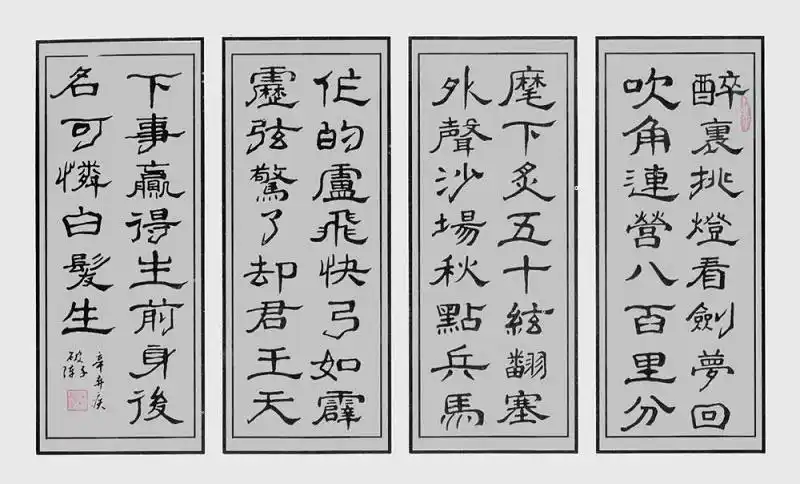 醉裏挑燈看劍夢回
吹角連營八百里分
麾下炙五十絃翻塞
外聲沙場秋點兵馬
作的盧飛快弓如霹
靂弦驚了却君王天
下事贏得生前身後
名可憐白髮生
辛弃疾
破阵子